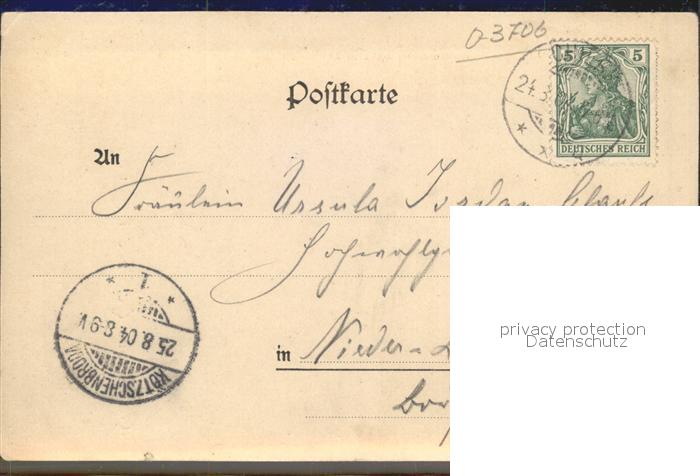 0-3706
5 5
24.8.04
DEUTSCHES REICH
Postkarte
An
Fräulein Ursula Jordan
Hochwohlg
KÖTZSCHENBRODA
25.8.04. 8-9 V.
1
in Nieder-L
privacy protection
Datenschutz